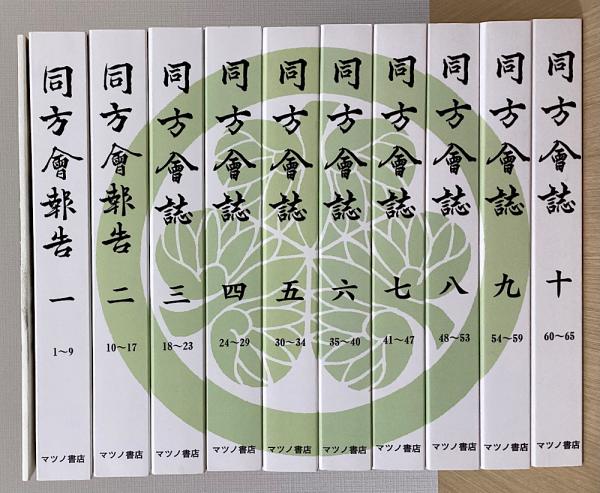 同方會報告 一
1〜9
マツノ書店
同方會報告 二
10〜17
マツノ書店
同方會誌 三
18〜23
マツノ書店
同方會誌 四
24〜29
マツノ書店
同方會誌 五
30〜34
マツノ書店
同方會誌 六
35〜40
マツノ書店
同方會誌 七
41〜47
マツノ書店
同方會誌 八
48〜53
マツノ書店
同方會誌 九
54〜59
マツノ書店
同方會誌 十
60〜65
マツノ書店